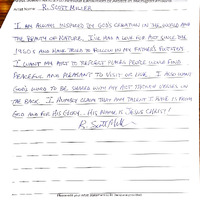 R. SCOTT MILLER
I AM ALWAYS INSPIRED BY GOD'S CREATION IN THE WORLD AND
THE BEAUTY OF NATURE. I'VE HAD A LOVE FOR ART SINCE THE
1950'S AND HAVE TRIED TO FOLLOW IN MY FATHER'S FOOTSTEPS.
I WANT MY ART TO REFLECT PLACES PEOPLE WOULD FIND
PEACEFUL AND PLEASANT TO VISIT OR LIVE. I ALSO WANT
GOD'S WORD TO BE SHARED WITH MY ART THROUGH VERSES ON
THE BACK. I ALWAYS CLAIM THAT ANY TALENT I HAVE IS FROM
GOD AND FOR HIS GLORY. HIS NAME IS JESUS CHRIST!
R. Scott Miller